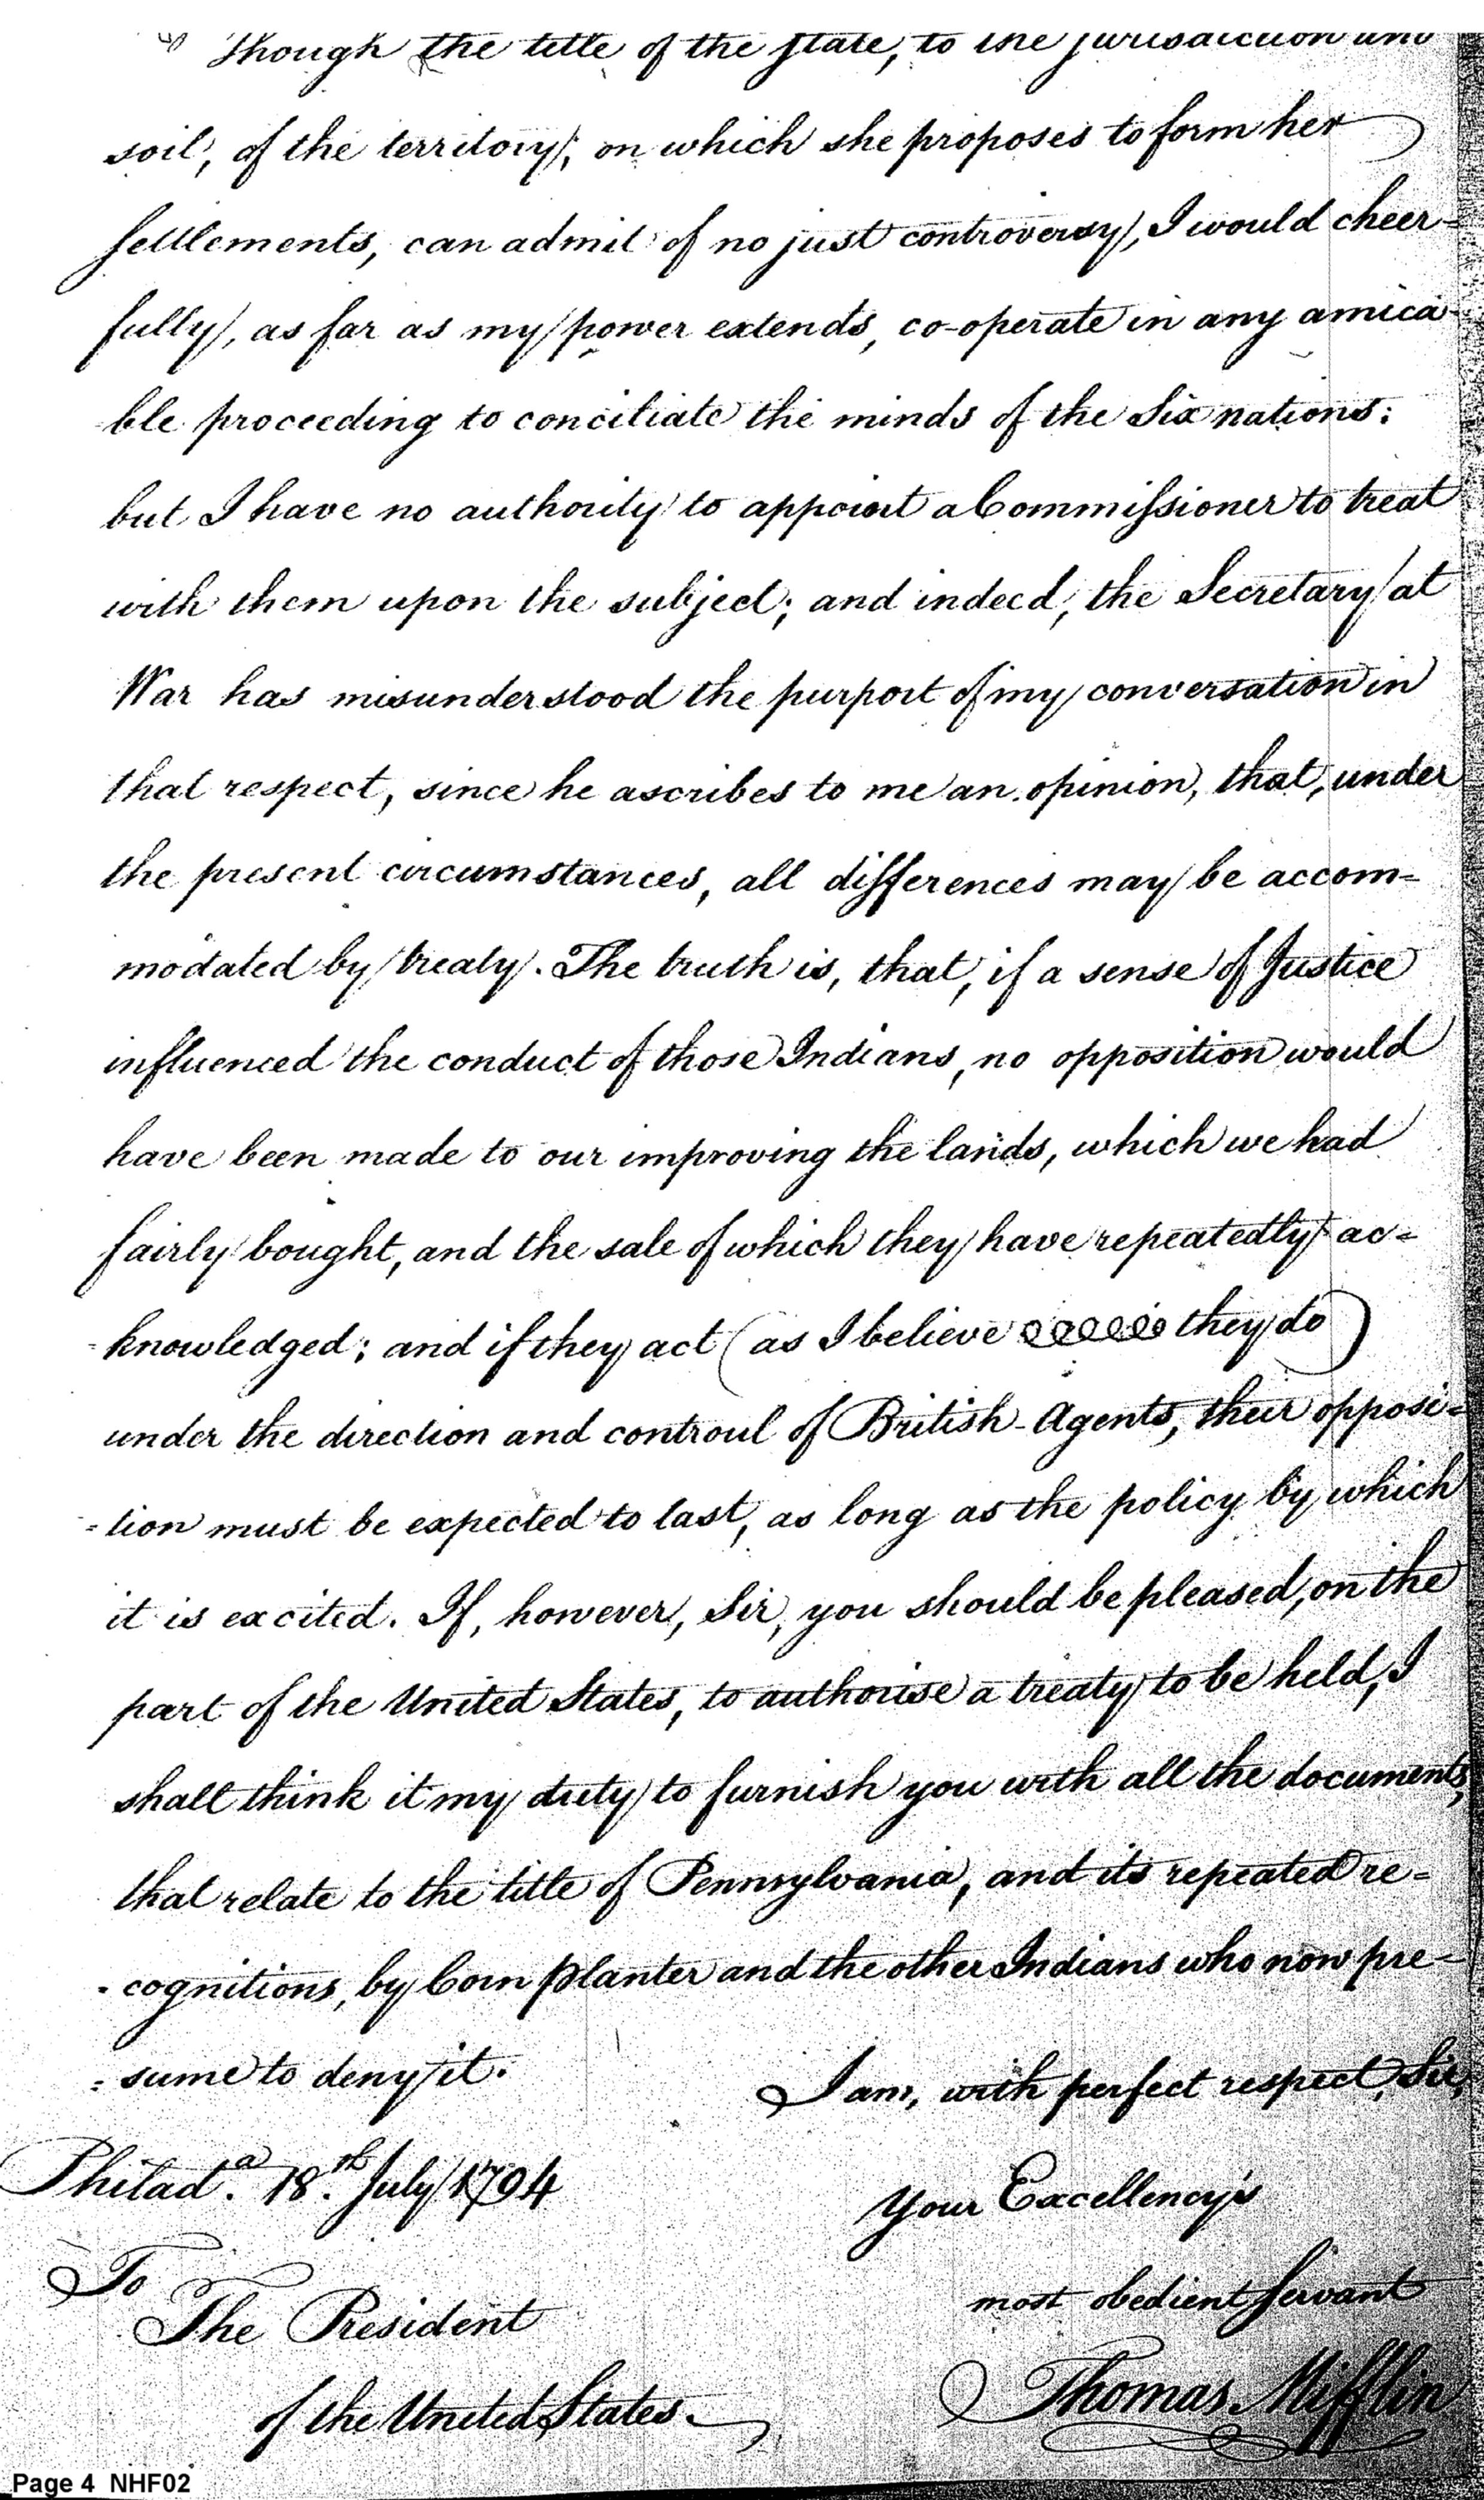 Though the title of the State, to the jurisdiction and
soil, of the territory, on which she proposes to form her
Settlements, can admit of no just controversy, I would cheer-
fully, as far as my power extends, co-operate in any amica-
ble proceeding to conciliate the minds of the Six nations:
but I have no authority to appoint a Commissioner to treat
with them upon the subject; and indeed, the Secretary at
War has misunderstood the purport of my conversation in
that respect, since he ascribes to me an opinion, that, under
the present circumstances, all differences may be accom-
modated by treaty. The truth is, that, if a sense of Justice
influenced the conduct of those Indians, no opposition would
have been made to our improving the lands, which we had
fairly bought, and the sale of which they have repeatedly ac=
-knowledged; and if they act (as I believe they do)
under the direction and controul of British-Agents, their opposi=
=tion must be expected to last, as long as the policy by which
it is excited. If, however, Sir, you should be pleased, on the
part of the United States, to authorise a treaty to be held, I
shall think it my duty to furnish you with all the documents,
that relate to the title of Pennsylvania, and its repeated re=
-cognitions, by Corn planter and the other Indians who now pre-
=sume to deny it.
I am, with perfect respect, Sir,
Philad.a 18.th July 1794
Your Excellency's
most obedient Servant
To
The President
Thomas Mifflin
of the United States.
Page 4 NHF02